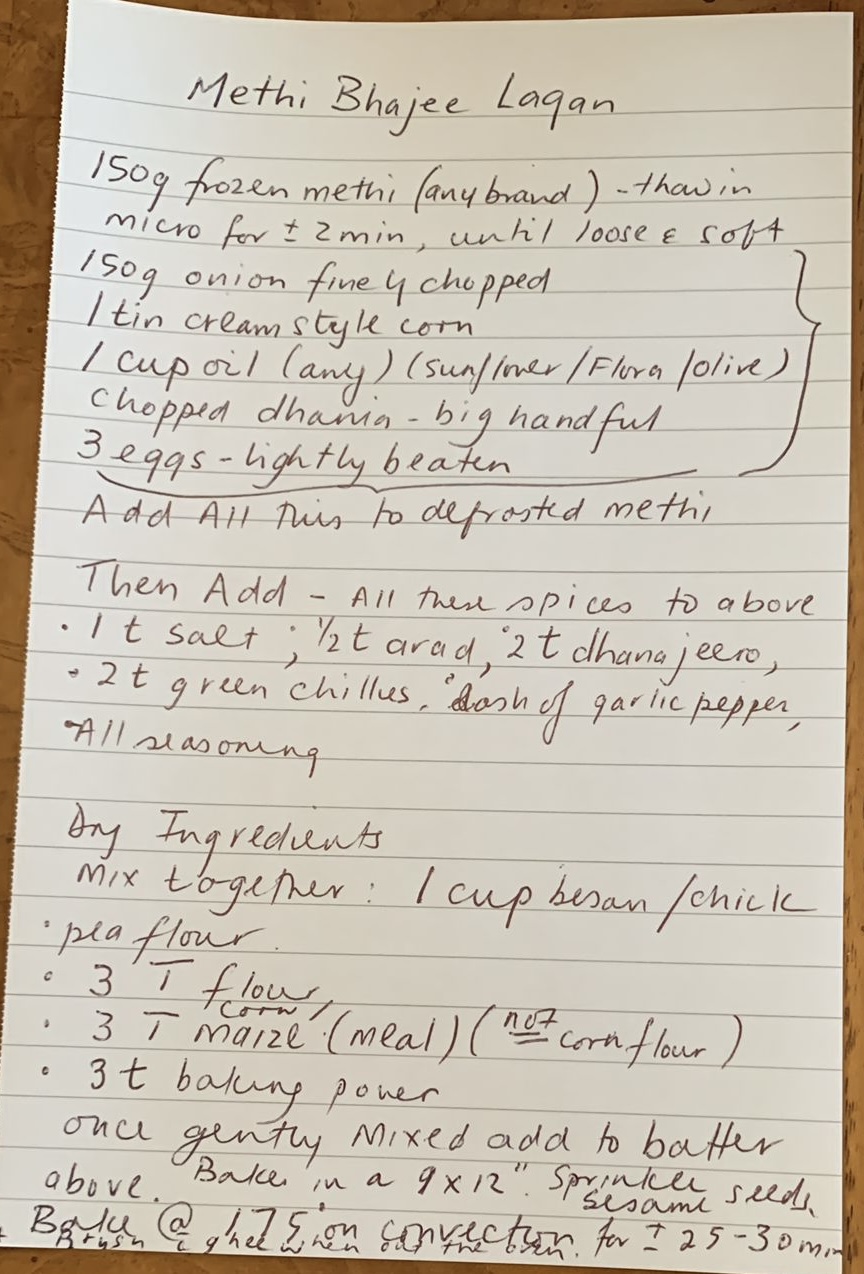 Methi Bhajee Lagan
150g frozen methi (any brand) - thaw in
micro for ± 2 min, until loose & soft
150g onion finely chopped
1 tin cream style corn
1 cup oil (any) (sunflower/Flora/olive)
chopped dhania - big handful
3 eggs - lightly beaten
Add All this to defrosted methi
Then Add - All these spices to above
• 1 t salt ; ½ t arad, • 2 t dhana jeero,
• 2 t green chillies. • dash of garlic pepper,
• All seasoning
Dry Ingredients
Mix together : 1 cup besan /chick
• pea flour.
• 3 T flour,
corn/
• 3 T maize (meal) (not corn flour)
• 3 t baking power
once gently mixed add to batter
above. Bake in a 9 x 12". Sprinkle
sesame seeds.
Bake @ 175° on convection for ± 25-30 min
Brush c ghee when out the oven.